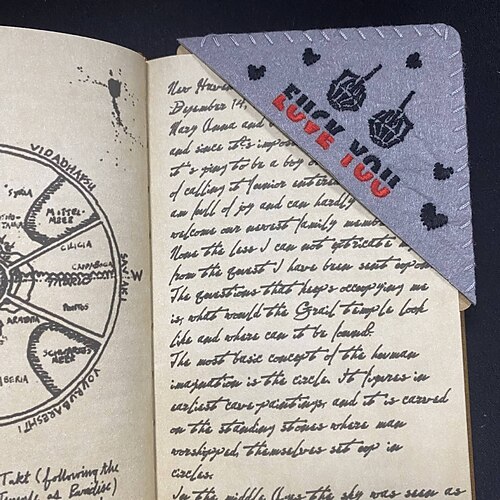 VIDADHAFSH
SYRIA
MITTEL-
MEER
CILICIA
CAPPADOCIA
PONTOS
ARABIA
SCHWARZES
MEER
IBERIA
SAVAHI
W
VOURUBARESHTI
Takt (following the
Temple of Paradise)
New Haven
Desember 14,
Mary Anna and
and since it's impos
it's going to be a boy
of calling it Junior
am full of joy and can hardly
welcome our newest family memb
None the less I can not
from the quest I have been sent upon
The questions that keeps occupying me
is, what would the Grail temple look
like and where can it be found.
The most basic concept of the human
imagination is the circle. It figures in
earliest cave paintings, and it is carved
on the standing stones where man
worshipped, themselves set up in
circles.
In the middle Ages the sky was seen as
FUCK YOU
LOVE YOU